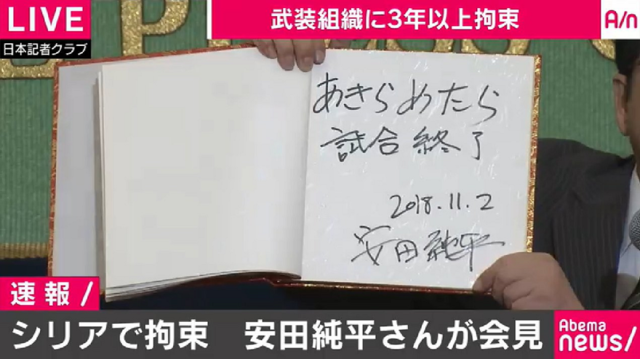 LIVE
武装組織に3年以上拘束
A/n
日本記者クラブ
あきらめたら
試合終了
2018.11.2
安田純平
速報/
シリアで拘束 安田純平さんが会見
Abema
news/